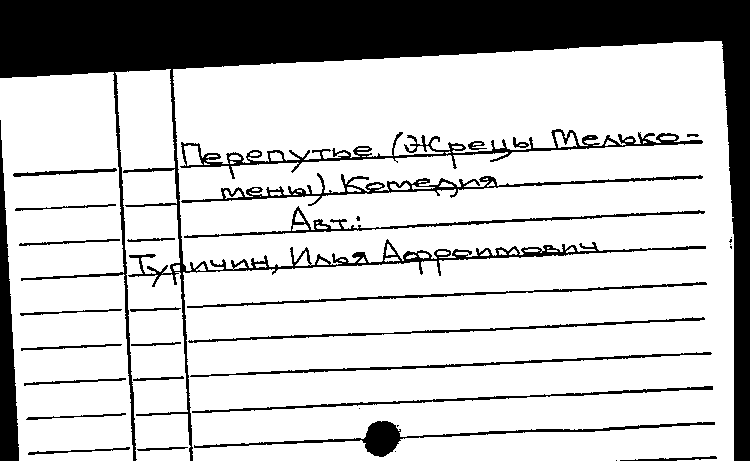 Перепутье. (Жрецы Мелько=
мены). Комедия
Авт.:
Туричин, Илья Афроимович